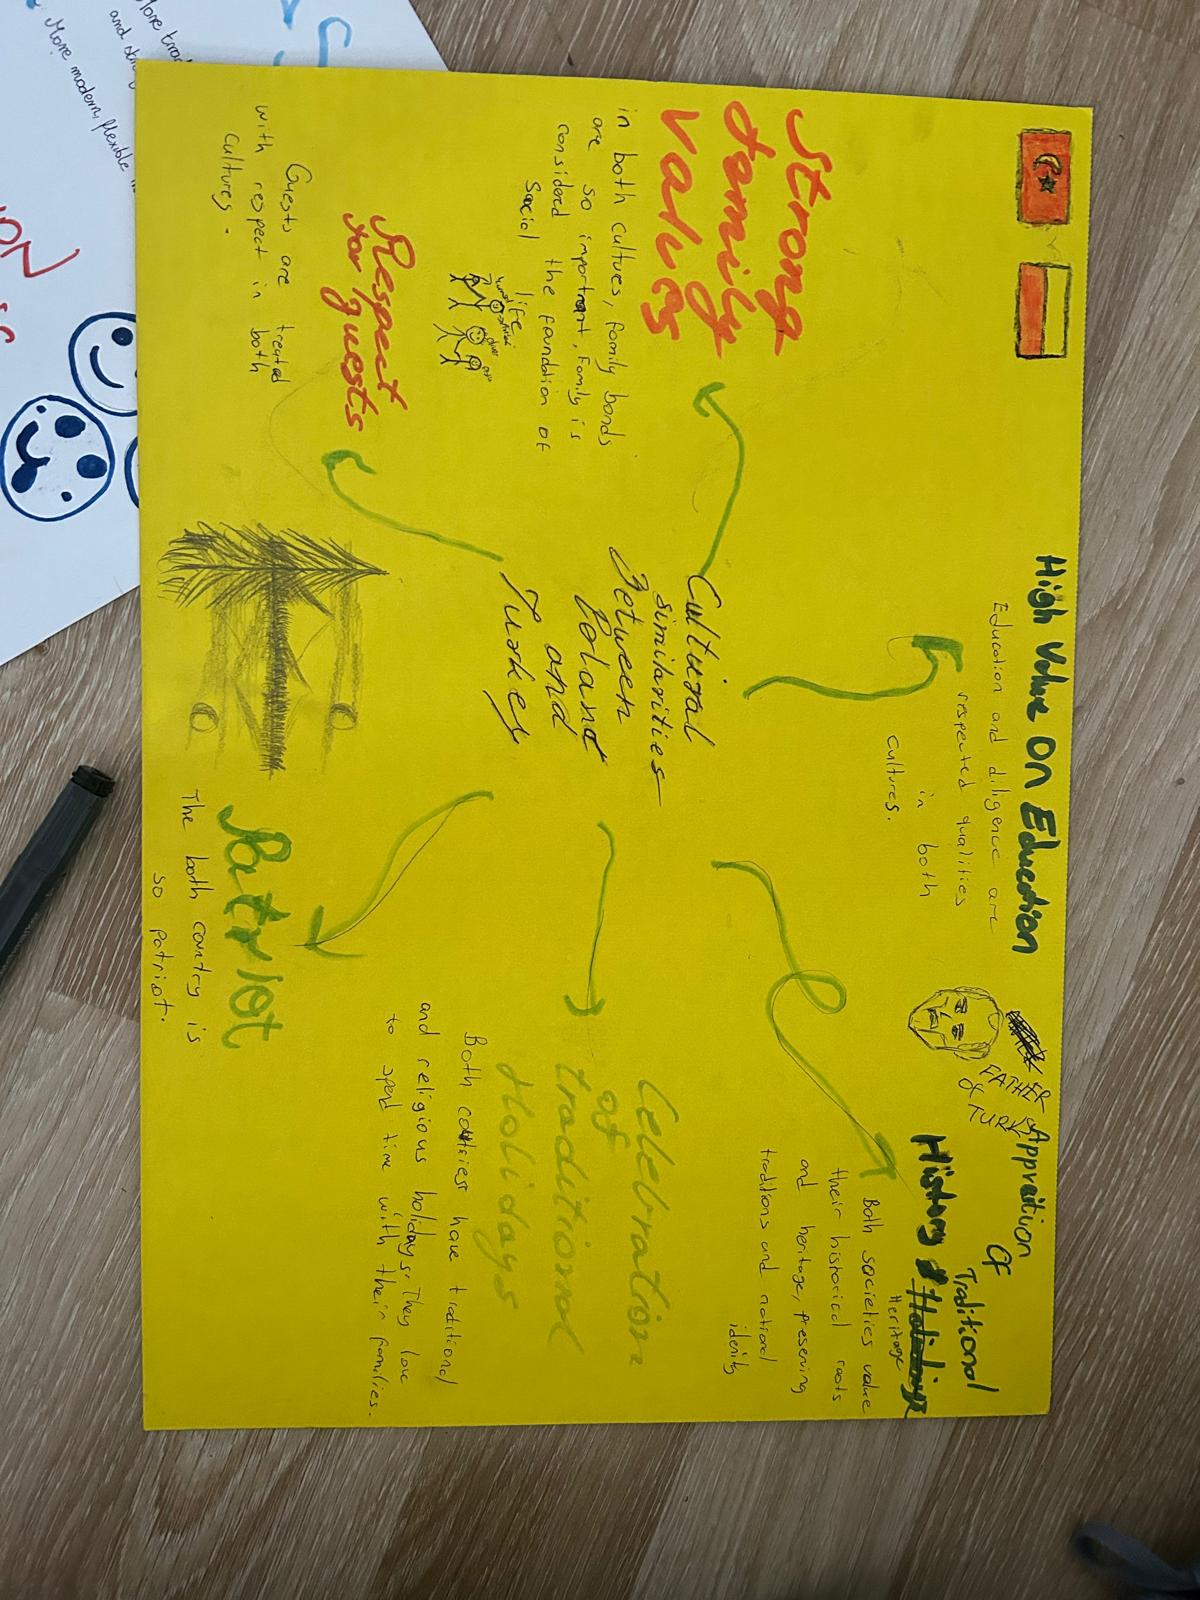 Strong
family
values
in both cultures, family bonds
are so important, family is
considered the foundation of
social life.
Respect
for guests
Guests are treated
with respect in both
cultures.
High Value on Education
Education and diligence are
respected qualities
in both
cultures.
Cultural
similarities
Between
Poland
and
Turkey
FATHER
of TURKS
Appraition
Of
Traditional
History & Holidays
Heritage
Both societies value
their historical roots
and heritage, preserving
traditions and national
idenity
Celebration
of
traditional
Holidays
Both contries have traditional
and religious holidays. They love
to spend time with their families.
Patriot
The both country is
so patriot.
More modern, flexible